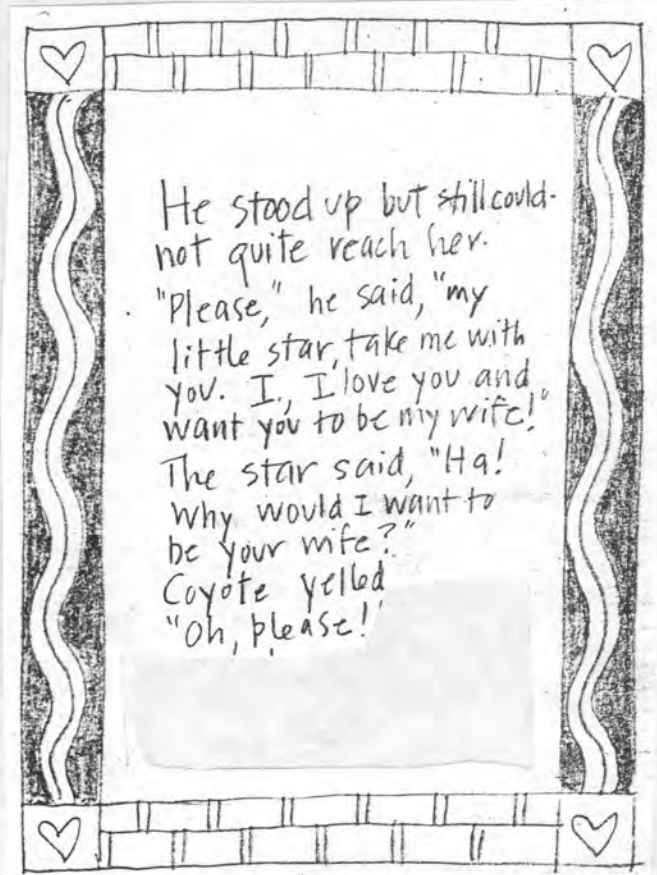 He stood up but still could-
not quite reach her.
"Please," he said, "my
little star, take me with
you. I., I love you and
want you to be my wife!"
The star said, "Ha!
Why would I want to
be your wife?"
Coyote yelled
"Oh, please!"